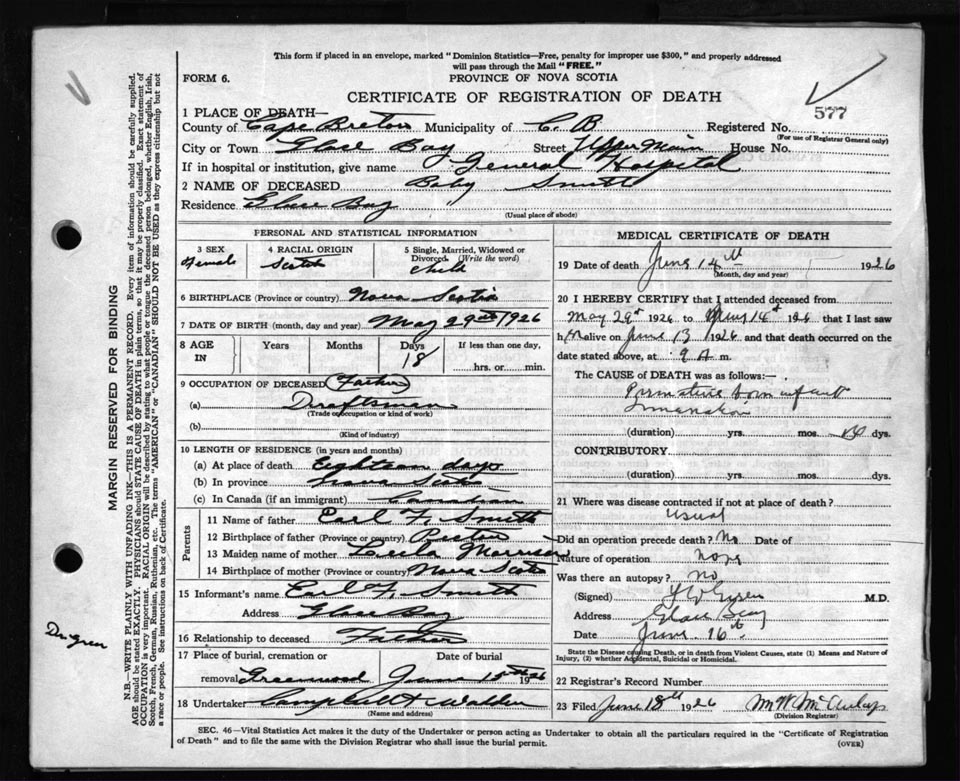 This form if placed in an envelope, marked "Dominion Statistics—Free, penalty for improper use $300," and properly addressed
will pass through the Mail "FREE."
FORM 6.
PROVINCE OF NOVA SCOTIA
CERTIFICATE OF REGISTRATION OF DEATH
577
1 PLACE OF DEATH—
County of Cape Breton Municipality of C. B Registered No.
(For use of Registrar General only)
City or Town Glace Bay Street Upper Main House No.
If in hospital or institution, give name General Hospital
2 NAME OF DECEASED Baby Smith
Residence Glace Bay
(Usual place of abode)
PERSONAL AND STATISTICAL INFORMATION
3 SEX Female
4 RACIAL ORIGIN Scotch
5 Single, Married, Widowed or Divorced. (Write the word) child
6 BIRTHPLACE (Province or country) Nova Scotia
7 DATE OF BIRTH (month, day and year) May 29th 1926
8 AGE IN Years Months Days 18 If less than one day, hrs. or min.
9 OCCUPATION OF DECEASED (Father)
(a) Draftsman
(Trade or occupation or kind of work)
(b)
(Kind of industry)
10 LENGTH OF RESIDENCE (in years and months)
(a) At place of death Eighteen days
(b) In province Nova Scotia
(c) In Canada (if an immigrant) Canadian
Parents
11 Name of father Earl F. Smith
12 Birthplace of father (Province or country) Pictou
13 Maiden name of mother Morrison
14 Birthplace of mother (Province or country) Nova Scotia
15 Informant's name Earl F. Smith
Address Glace Bay
16 Relationship to deceased Father
17 Place of burial, cremation or removal Greenwood
Date of burial June 15th 1926
18 Undertaker Campbell & Walden
(Name and address)
MEDICAL CERTIFICATE OF DEATH
19 Date of death June 14th 1926
(Month, day and year)
20 I HEREBY CERTIFY that I attended deceased from
May 29th 1926 to June 14th 1926 that I last saw
h alive on June 13 1926 and that death occurred on the
date stated above, at 9 A m.
The CAUSE of DEATH was as follows:—
Premature born infant
Inanation
(duration) yrs. mos. dys.
CONTRIBUTORY
(duration) yrs. mos. dys.
21 Where was disease contracted if not at place of death?
Usual
Did an operation precede death? No Date of
Nature of operation none
Was there an autopsy? no
(Signed) M.D.
Address Glace Bay
Date June 16th
State the Disease causing Death, or in death from Violent Causes, state (1) Means and Nature of
Injury, (2) whether Accidental, Suicidal or Homicidal.
22 Registrar's Record Number
23 Filed June 18th 1926
(Division Registrar)
SEC. 46—Vital Statistics Act makes it the duty of the Undertaker or person acting as Undertaker to obtain all the particulars required in the "Certificate of Registration
of Death" and to file the same with the Division Registrar who shall issue the burial permit.
(OVER)
MARGIN RESERVED FOR BINDING
N.B.—WRITE PLAINLY WITH UNFADING INK—THIS IS A PERMANENT RECORD. Every item of information should be carefully supplied.
AGE should be stated EXACTLY. PHYSICIANS should STATE CAUSE OF DEATH in plain terms, so that it may be properly classified. Exact statement of
OCCUPATION is very important. RACIAL ORIGIN will be described by stating to what people or tongue the deceased person belonged, whether English, Irish,
Scotch, French, German, Russian, Ruthenian, etc. The terms "AMERICAN" or "CANADIAN" SHOULD NOT BE USED as they express citizenship but not
a race or people. See instructions on back of Certificate.